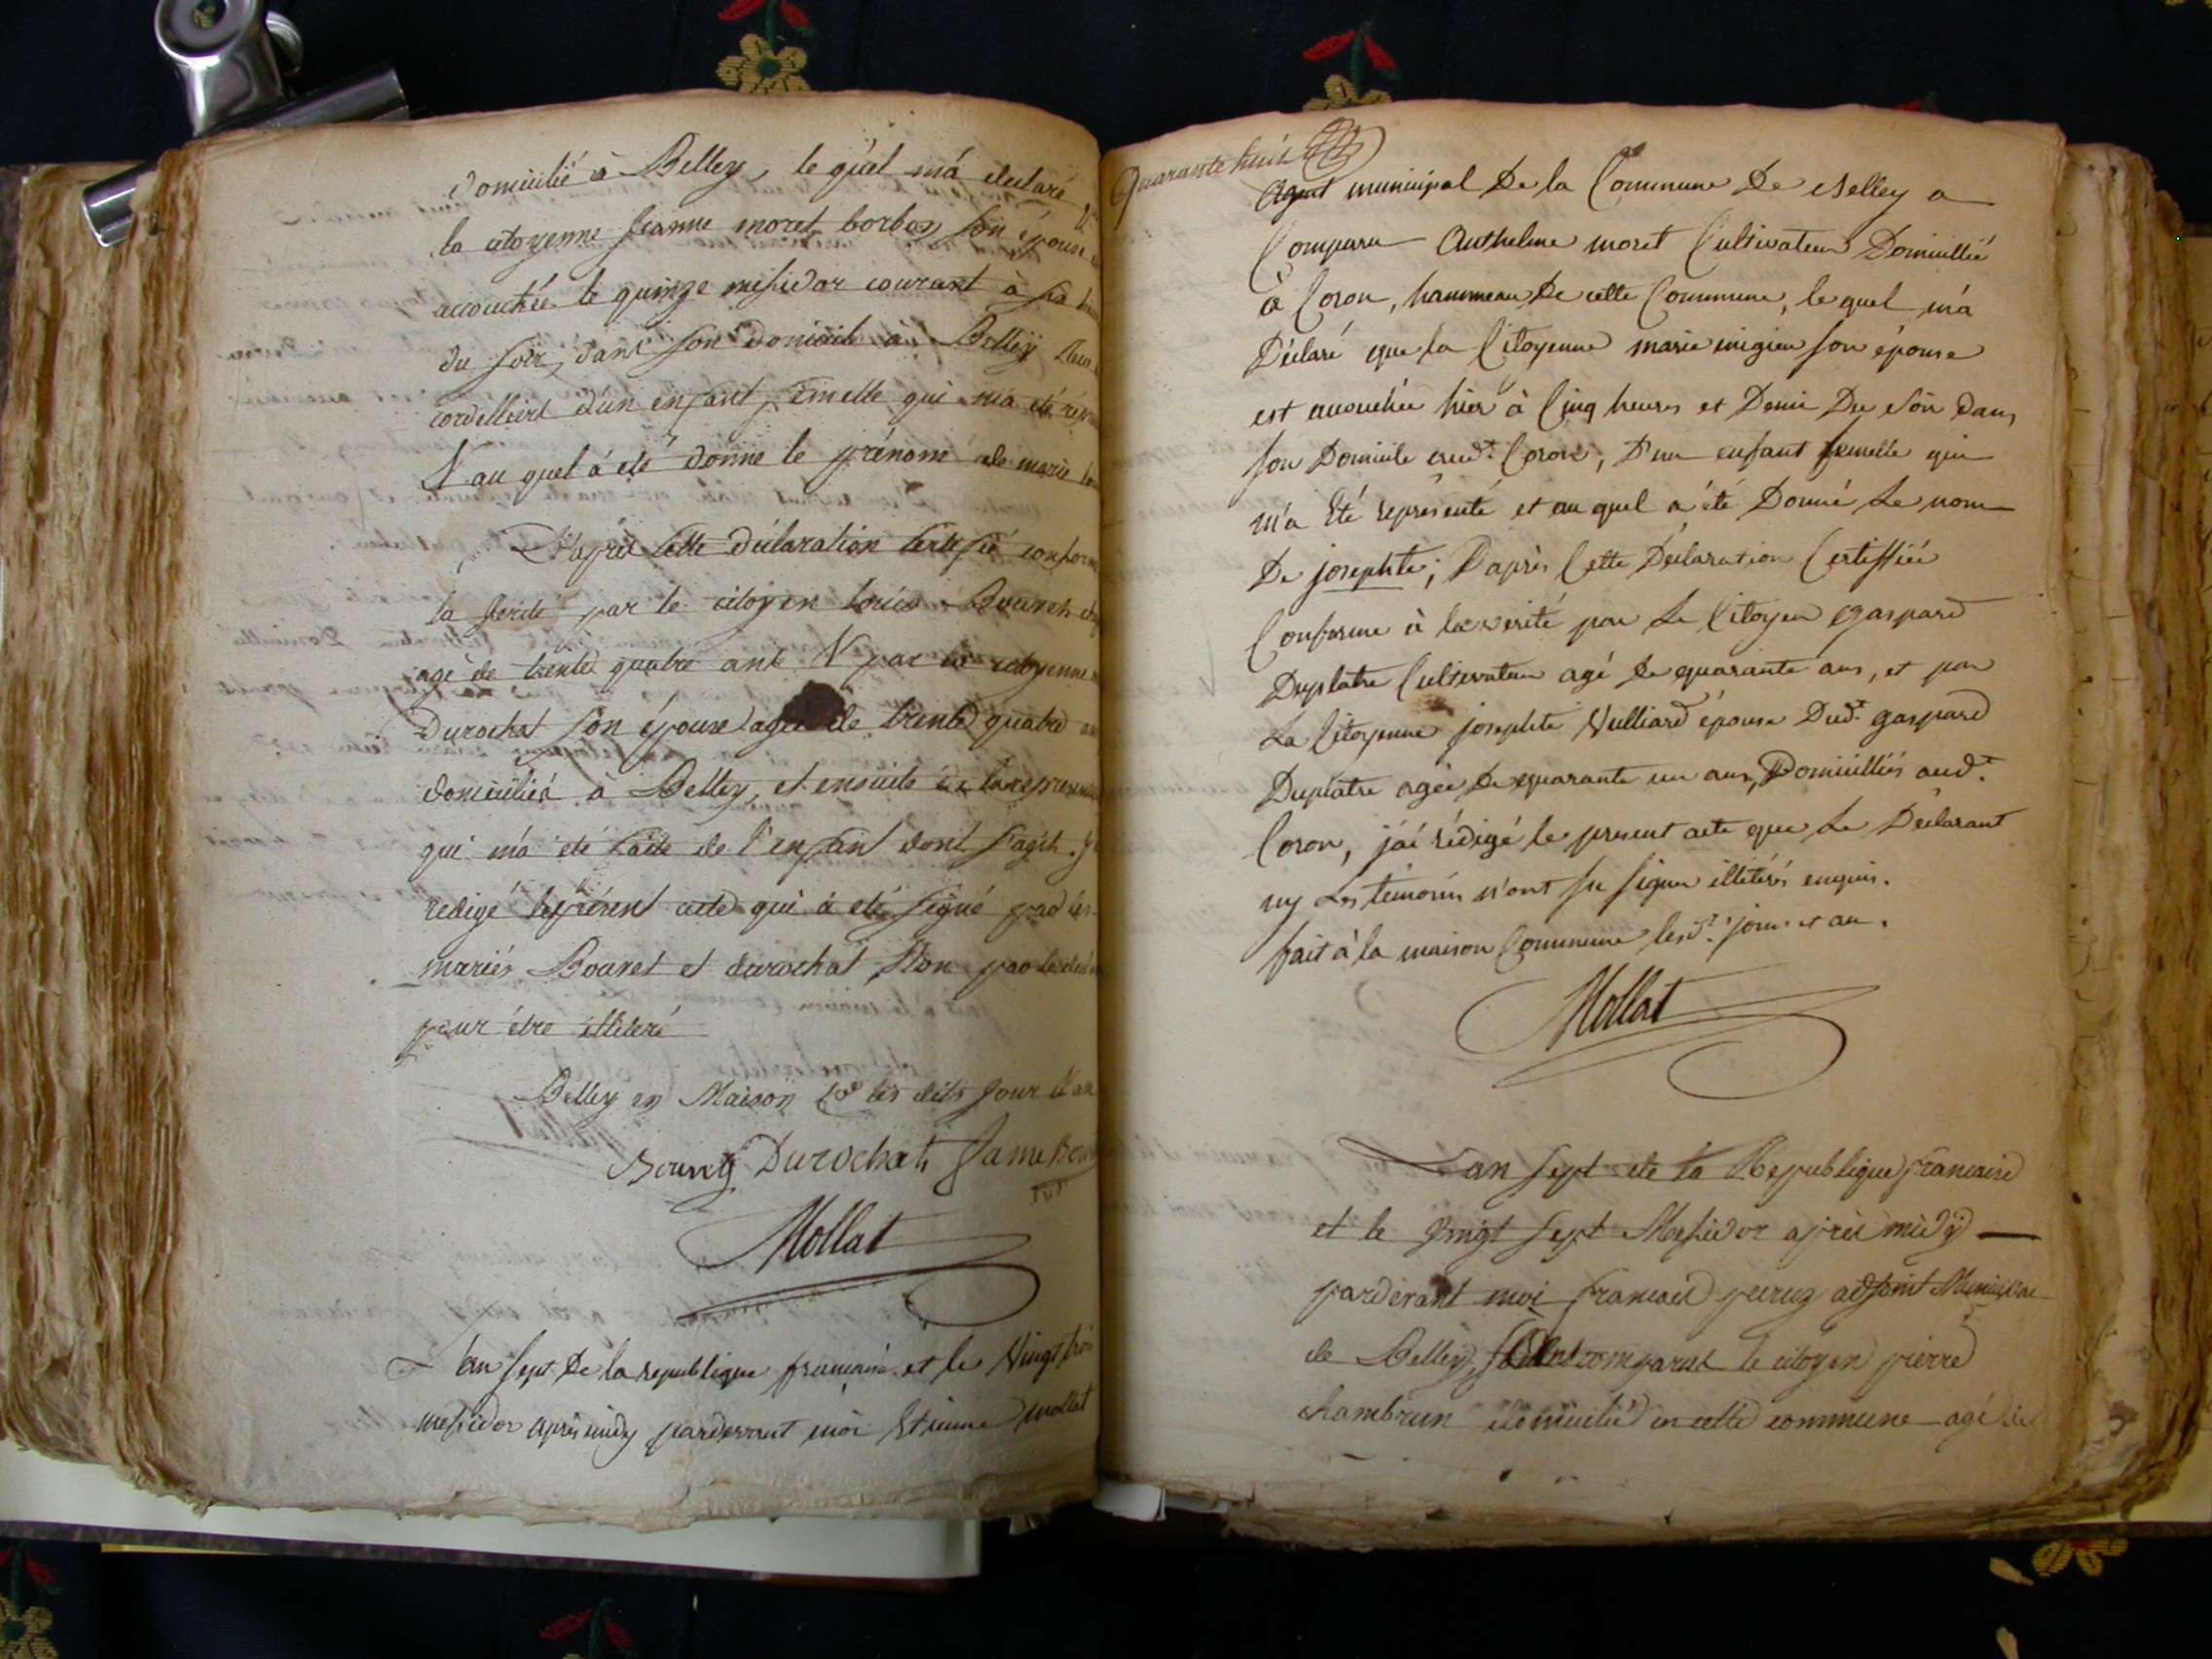 domicilié à Belley, le quel m'á declaré
la citoyenne Jeanne moret borbon son épouse
accouchée le quinze messidor courant à six
du soir, dans son domicile à Belley
cordelliers d'un enfant femelle qui m'a été
& au quel á eté donné le prénom de marie
D'après cette déclaration certifié conforme
la verité par le citoyen Bouvet
agé de trente quatre ans & par la citoyenne
Durochat son épouse agée de trente quatre
domiciliés à Belley, et ensuite de la
qui m'á été faite de l'enfant dont s'agit. J
redigé le présent acte qui à eté signé par les
mariés Bouvet et durochat, Non par le
pour être illiteré
Belley en Maison Cne les dits Jour & an
Bouvet Durochat
Mollat
L'an sept De la republique francaise et le Vingt
messidor après midy pardevant moi Etienne mollat
Quarante huit
Agent municipal De la Commune De Belley a
Comparu Anthelme moret Cultivateur Domicillié
à Coron, hammeau De cette Commune, le quel m'a
Déclaré que la Citoyenne marie son épouse
est accouchée hier à Cinq heures et Demi Du soir dans
son Domicile aud.t Coron, D'un enfant femelle qui
m'a Eté représenté et au quel a été Donné Le nom
De josephte; D'après Cette Déclaration Certiffiée
Conforme à la verité par Le Citoyen gaspard
Duplatre Cultivateur agé de quarante ans, et par
La Citoyenne josephte Vulliard épouse Dud.t gaspard
Duplatre agée De quarante un ans, Domicilliés aud.t
Coron, j'ai rédigé le present acte que Le Déclarant
ny Les témoins n'ont su signer illitérés enquis.
fait à la maison Commune lesd.ts jour et an.
Mollat
L'an sept de la Republique francaise
et le vingt sept Messidor après midÿ
pardevant moi francois peruz adjoint Municipal
de Belley, comparut le citoyen pierre
chambrun domicilié en cette commune agé de